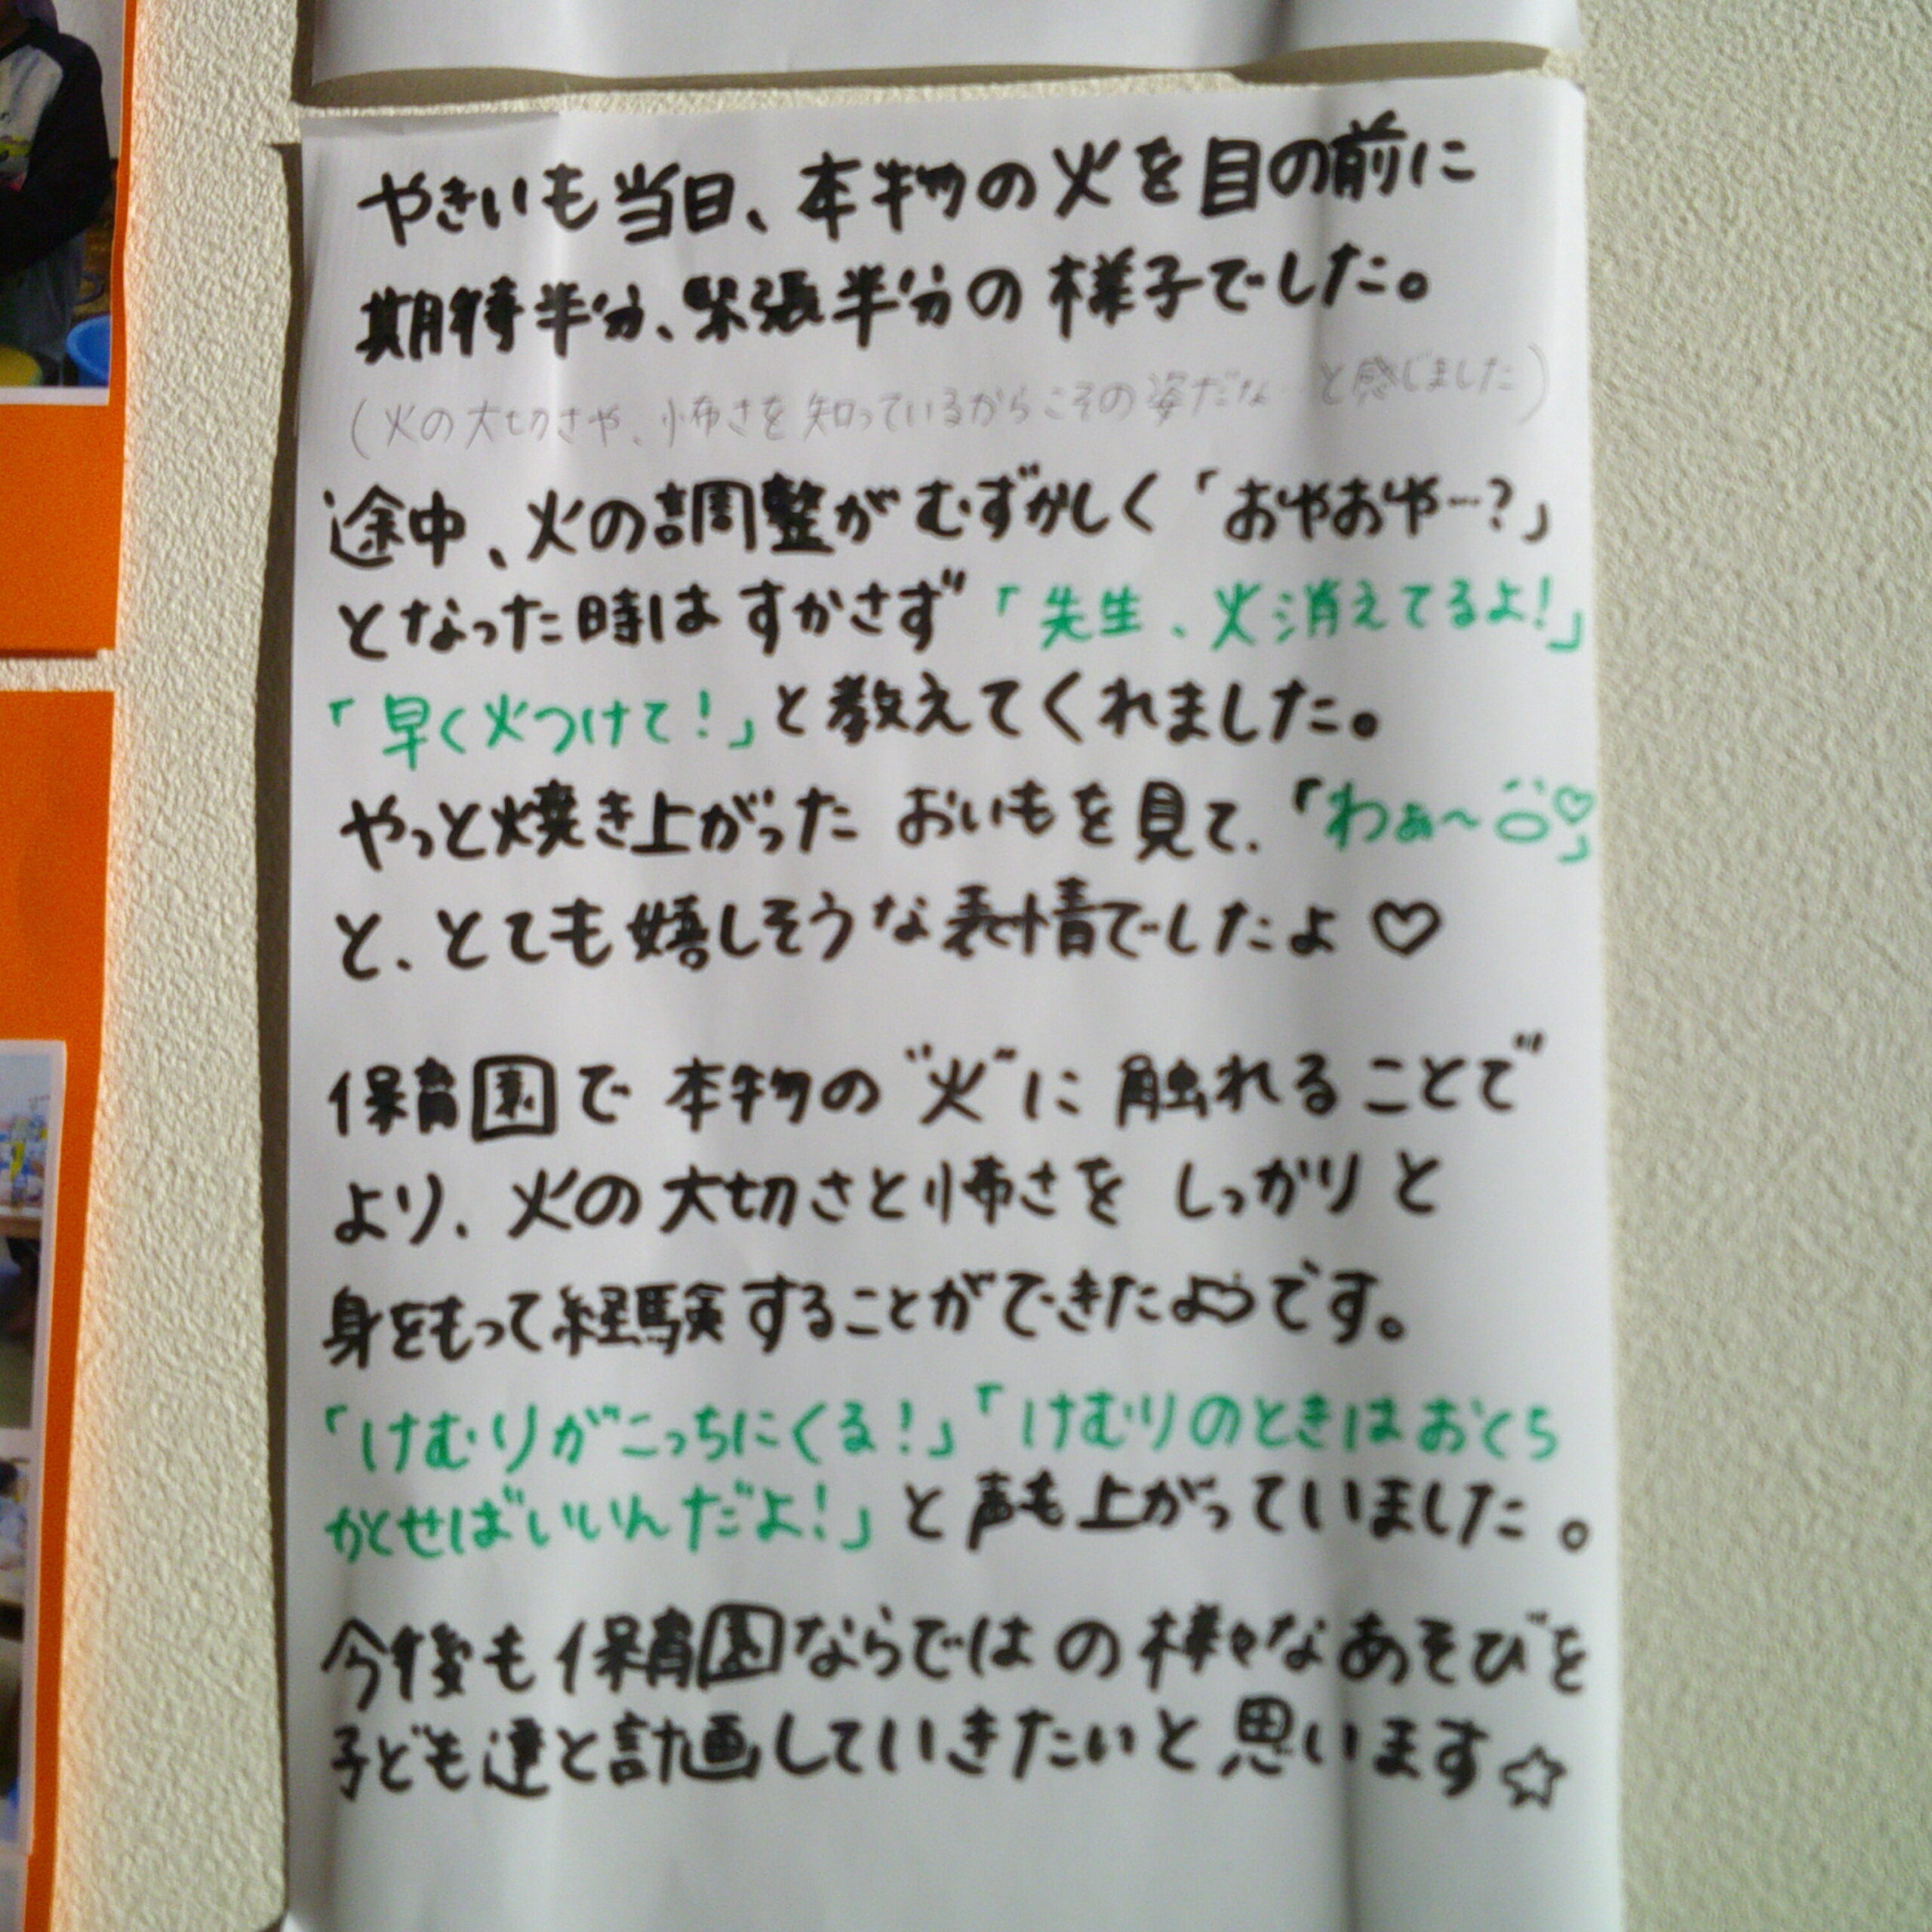 やきいも当日、本物の火を目の前に
期待半分、緊張半分の様子でした。
(火の大切さや、怖さを知っているからこその姿だな…と感じました)
途中、火の調整がむずかしく「おやおや…?」
となった時はすかさず「先生、火消えてるよ!」
「早く火つけて!」と教えてくれました。
やっと焼き上がったおいもを見て、「わぁ〜♡」
と、とても嬉しそうな表情でしたよ♡
保育園で本物の"火"に触れることで
より、火の大切さと怖さをしっかりと
身をもって経験することができたようです。
「けむりがこっちにくる!」「けむりのときはおくち
かくせばいいんだよ!」と声も上がっていました。
今後も保育園ならではの様々なあそびを
子ども達と計画していきたいと思います☆